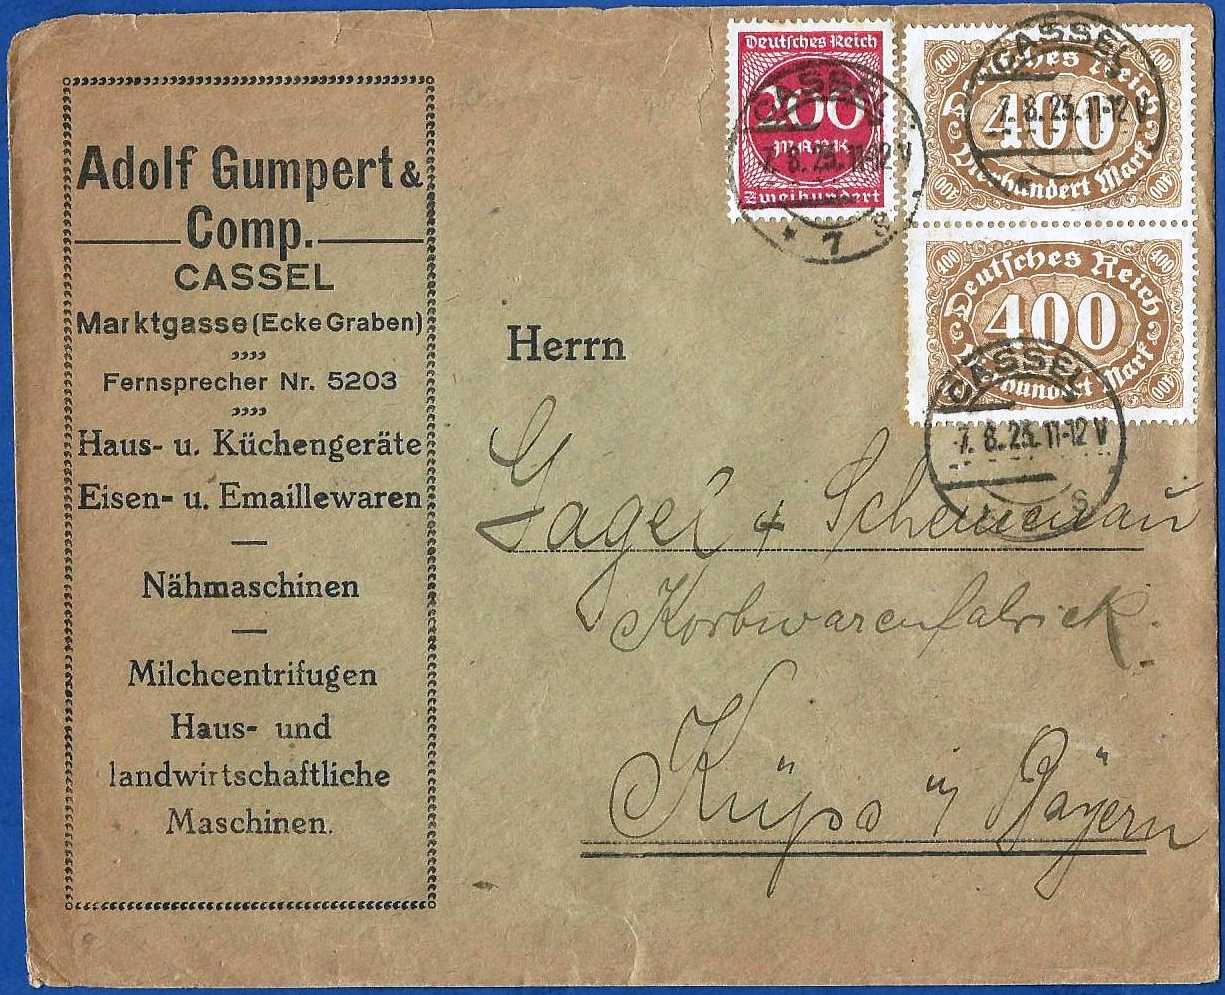 Adolf Gumpert &
Comp.
CASSEL
Marktgasse (Ecke Graben)
Fernsprecher Nr. 5203
Haus- u. Küchengeräte
Eisen- u. Emaillewaren
Nähmaschinen
Milchcentrifugen
Haus- und
landwirtschaftliche
Maschinen.
Deutsches Reich
200
MARK
Zweihundert
CASSEL
7.8.23.11-12 V
* 7 s
Deutsches Reich
400
400
400
Vierhundert Mark
400
400
CASSEL
7.8.23.11-12 V
Deutsches Reich
400
400
400
Vierhundert Mark
400
400
CASSEL
7.8.23.11-12 V
s
Herrn
Gagel &
Korbwarenfabrick.
Küps i/ Bayern